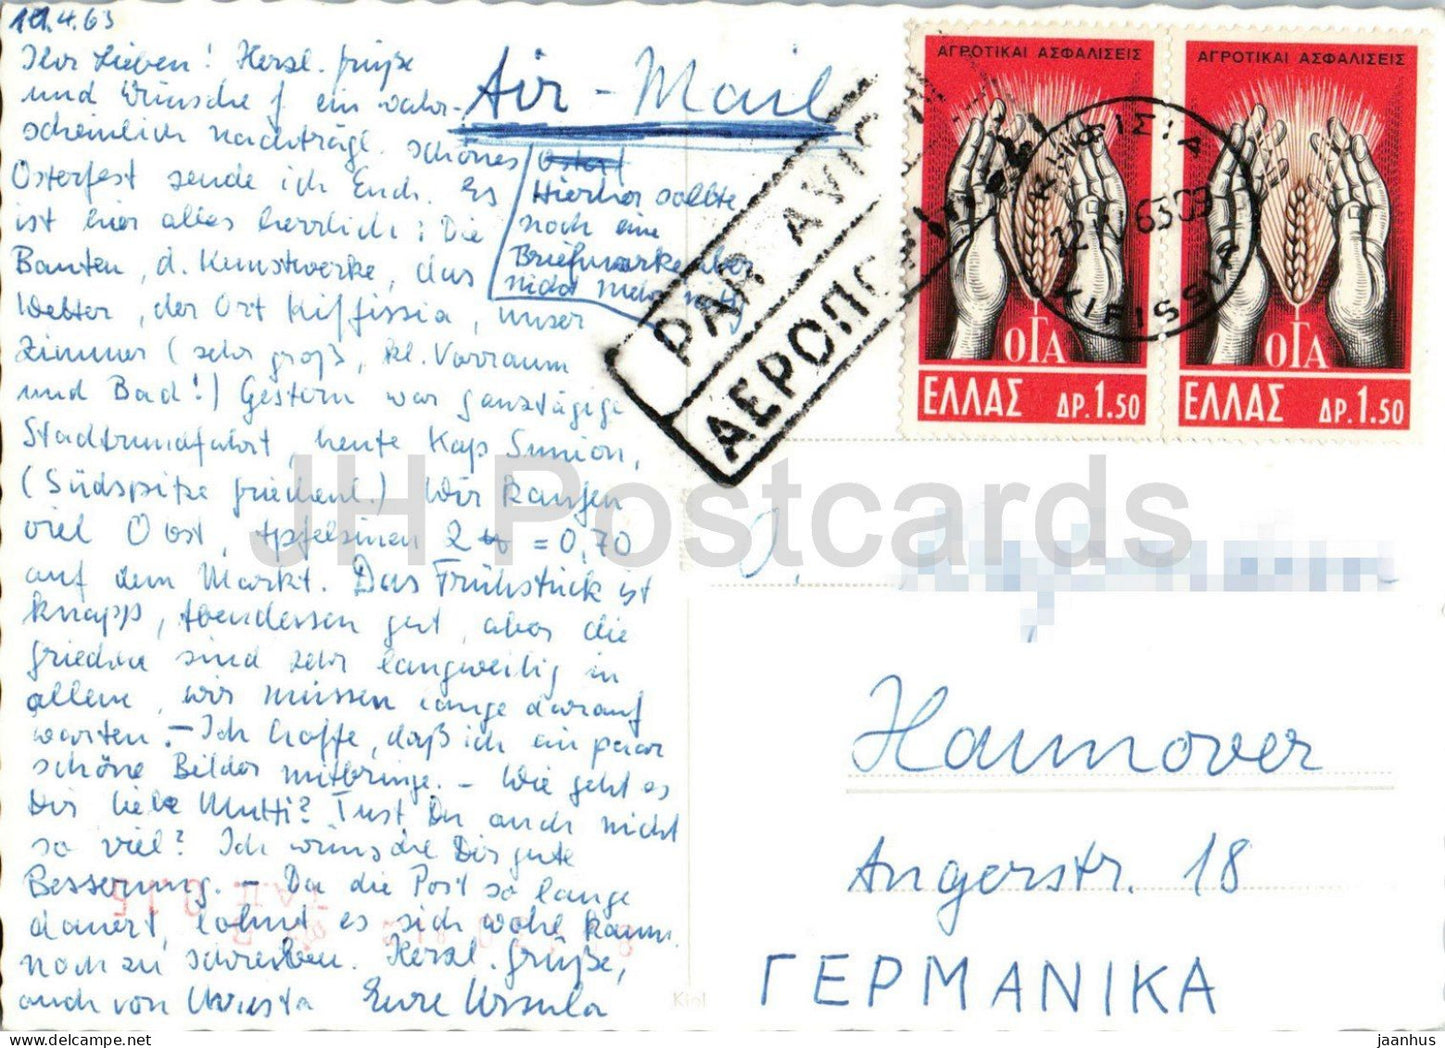 11.4.63
Ihr Lieben! Herzl. Grüße
und Wünsche f ein wahr-
scheinlich nachträgl. schönes
Osterfest sende ich Euch. Es
ist hier alles herrlich: Die
Bauten, d. Kunstwerke, das
Wetter, der Ort Kiffissia, unser
Zimmer (sehr groß, kl. Vorraum
und Bad!) Gestern war ganztägige
Stadtrundfahrt, heute Kap Sunion,
(Südspitze Griechenl.) Wir kaufen
viel Obst, Apfelsinen 2 = 0,70
auf dem Markt. Das Frühstück ist
knapp, Abendessen gut, aber die
Griechen sind sehr langweilig in
allem, wir müssen lange darauf
warten. – Ich hoffe, daß ich ein paar
schöne Bilder mitbringe. – Wie geht es
Dir liebe Mutti? Tust Du auch nicht
so viel? Ich wünsche Dir gute
Besserung. – Da die Post so lange
dauert, lohnt es sich wohl kaum
noch zu schreiben. Herzl. Grüße,
auch von Christa Eure Ursula
Air-Mail
Hierher sollte
noch eine
Briefmarke, aber
nicht mehr
PAR AVION
ΑΕΡΟΠΟ
ΑΓΡΟΤΙΚΑΙ ΑΣΦΑΛΙΣΕΙΣ
ΟΓΑ
ΕΛΛΑΣ ΔΡ. 1.50
ΑΓΡΟΤΙΚΑΙ ΑΣΦΑΛΙΣΕΙΣ
ΟΓΑ
ΕΛΛΑΣ ΔΡ. 1.50
ΚΗΦΙΣΙΑ
12 IV 63
KIFISSIA
JH Postcards
Hannover
Angerstr. 18
ΓΕΡΜΑΝΙΚΑ
jaanhus
delcampe.net